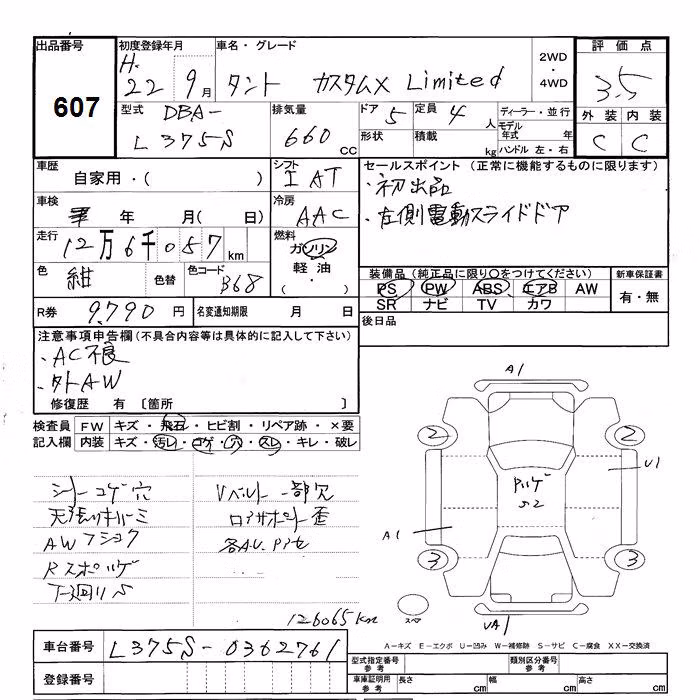 出品番号 607
初度登録年月 H. 22 9月
車名・グレード タント カスタムX Limited
2WD ・ 4WD
評価点 3.5
外装 内装
C C
型式 DBA- L375S
排気量 660 CC
ドア 5 定員 4人
形状 積載 kg
ディーラー・並行
モデル年式 年
ハンドル 左・右
車歴 自家用・( )
シフト I AT
セールスポイント (正常に機能するものに限ります)
・初出品
・左側電動スライドドア
車検 年 月( 日)
冷房 AAC
走行 12万6千057km
燃料 ガソリン 軽油 ・
色 紺 色替
色コード B68
装備品(純正品に限り○をつけてください)
PS PW ABS エアB AW
SR ナビ TV カワ
新車保証書 有・無
R券 9,790円
名変通知期限 月 日
後日品
注意事項申告欄(不具合内容等は具体的に記入して下さい)
・AC不良
・外AW
修復歴 有 〔箇所 〕
検査員記入欄
FW キズ・飛石・ヒビ割・リペア跡・×要
内装 キズ・汚レ・コゲ・穴・スレ・キレ・破レ
シートコゲ穴
AWフショク
下廻りS
Vベルト一部欠
126065km
A1
2 2
U1
ハゲ
A1
3 3
スペア
UA1
A-キズ E-エクボ U-凹み W-補修跡 S-サビ C-腐食 XX-交換済
車台番号 L375S-0362761
登録番号
型式指定番号 参考
類別区分番号 参考
車庫証明用 参考 長さ cm 幅 cm 高さ cm